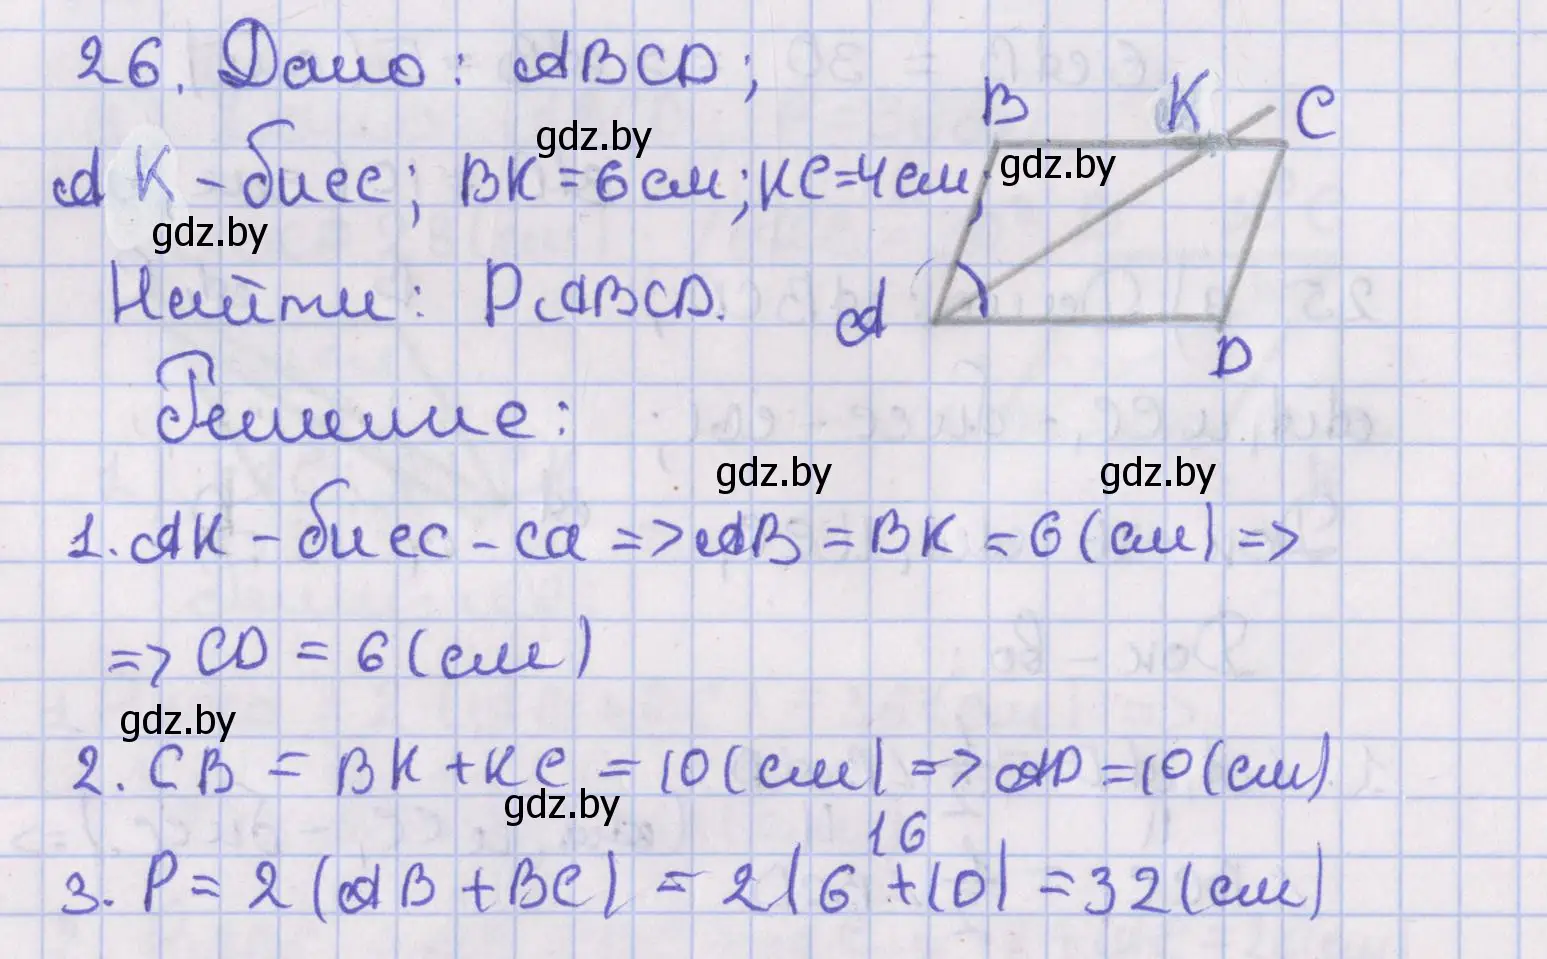 26. Дано: ABCD;
AK - бисс; BK = 6 см; KC = 4 см;
Найти: PABCD.
B K C
A D
Решение:
1. AK - бисс - са => AB = BK = 6 (см) =>
=> CD = 6 (см)
2. CB = BK + KC = 10 (см) => AD = 10 (см)
16
3. P = 2 (AB + BC) = 2 (6 + 10) = 32 (см)
gdz.by
gdz.by
gdz.by
gdz.by
gdz.by
gdz.by
gdz.by